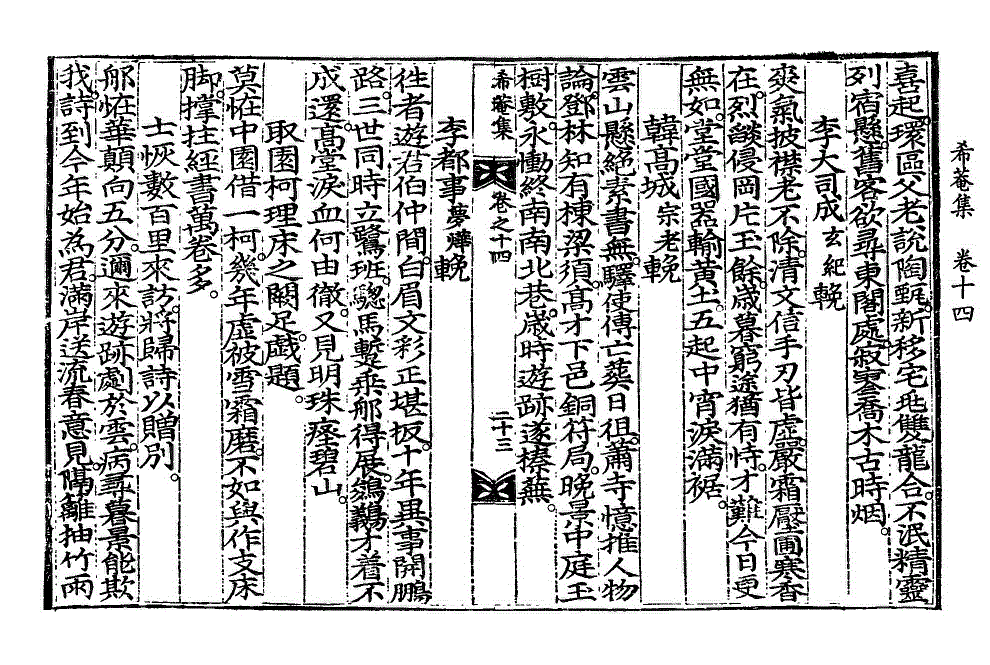 希菴集 卷十四
喜起。環區父老說陶甄。新移宅地雙龍合。不泯精靈
列宿懸。舊客欲尋東閣處。寂寥喬木古時烟。
李大司成 玄紀 輓
爽氣披襟老不除。淸文信手刃皆虛。嚴霜壓圃寒香
在。烈燄侵岡片玉餘。歲暮窮途猶有恃。才難今日更
無如。堂堂國器輸黃土。五起中宵淚滿裾。
韓高城 宗老 輓
雲山懸絶素書無。驛使傳亡葬日徂。蕭寺憶推人物
論。鄧林知有棟梁須。高才下邑銅符局。晩景中庭玉
樹敷。永慟終南南北巷。歲時遊跡遂榛蕪。
希菴集 卷之十四 二十三
李都事 夢燁 輓
徃者遊君伯仲間。白眉文彩正堪扳。十年異事開鵬
路。三世同時立鷺班。驄馬蹔乘郍得展。鷄鶵才着不
成還。高堂淚血何由徹。又見明珠瘞碧山。
取園柯理床之闕足。戱題。
莫恠中園借一柯。幾年虛被雪霜磨。不如與作支床
脚。撑拄經書萬卷多。
士恢數百里來訪。將歸詩以贈別。
郍恠華顚向五分。邇來遊跡劇於雲。病尋暮景能欺
我。詩到今年始爲君。滿岸送流春意見。隔籬抽竹雨